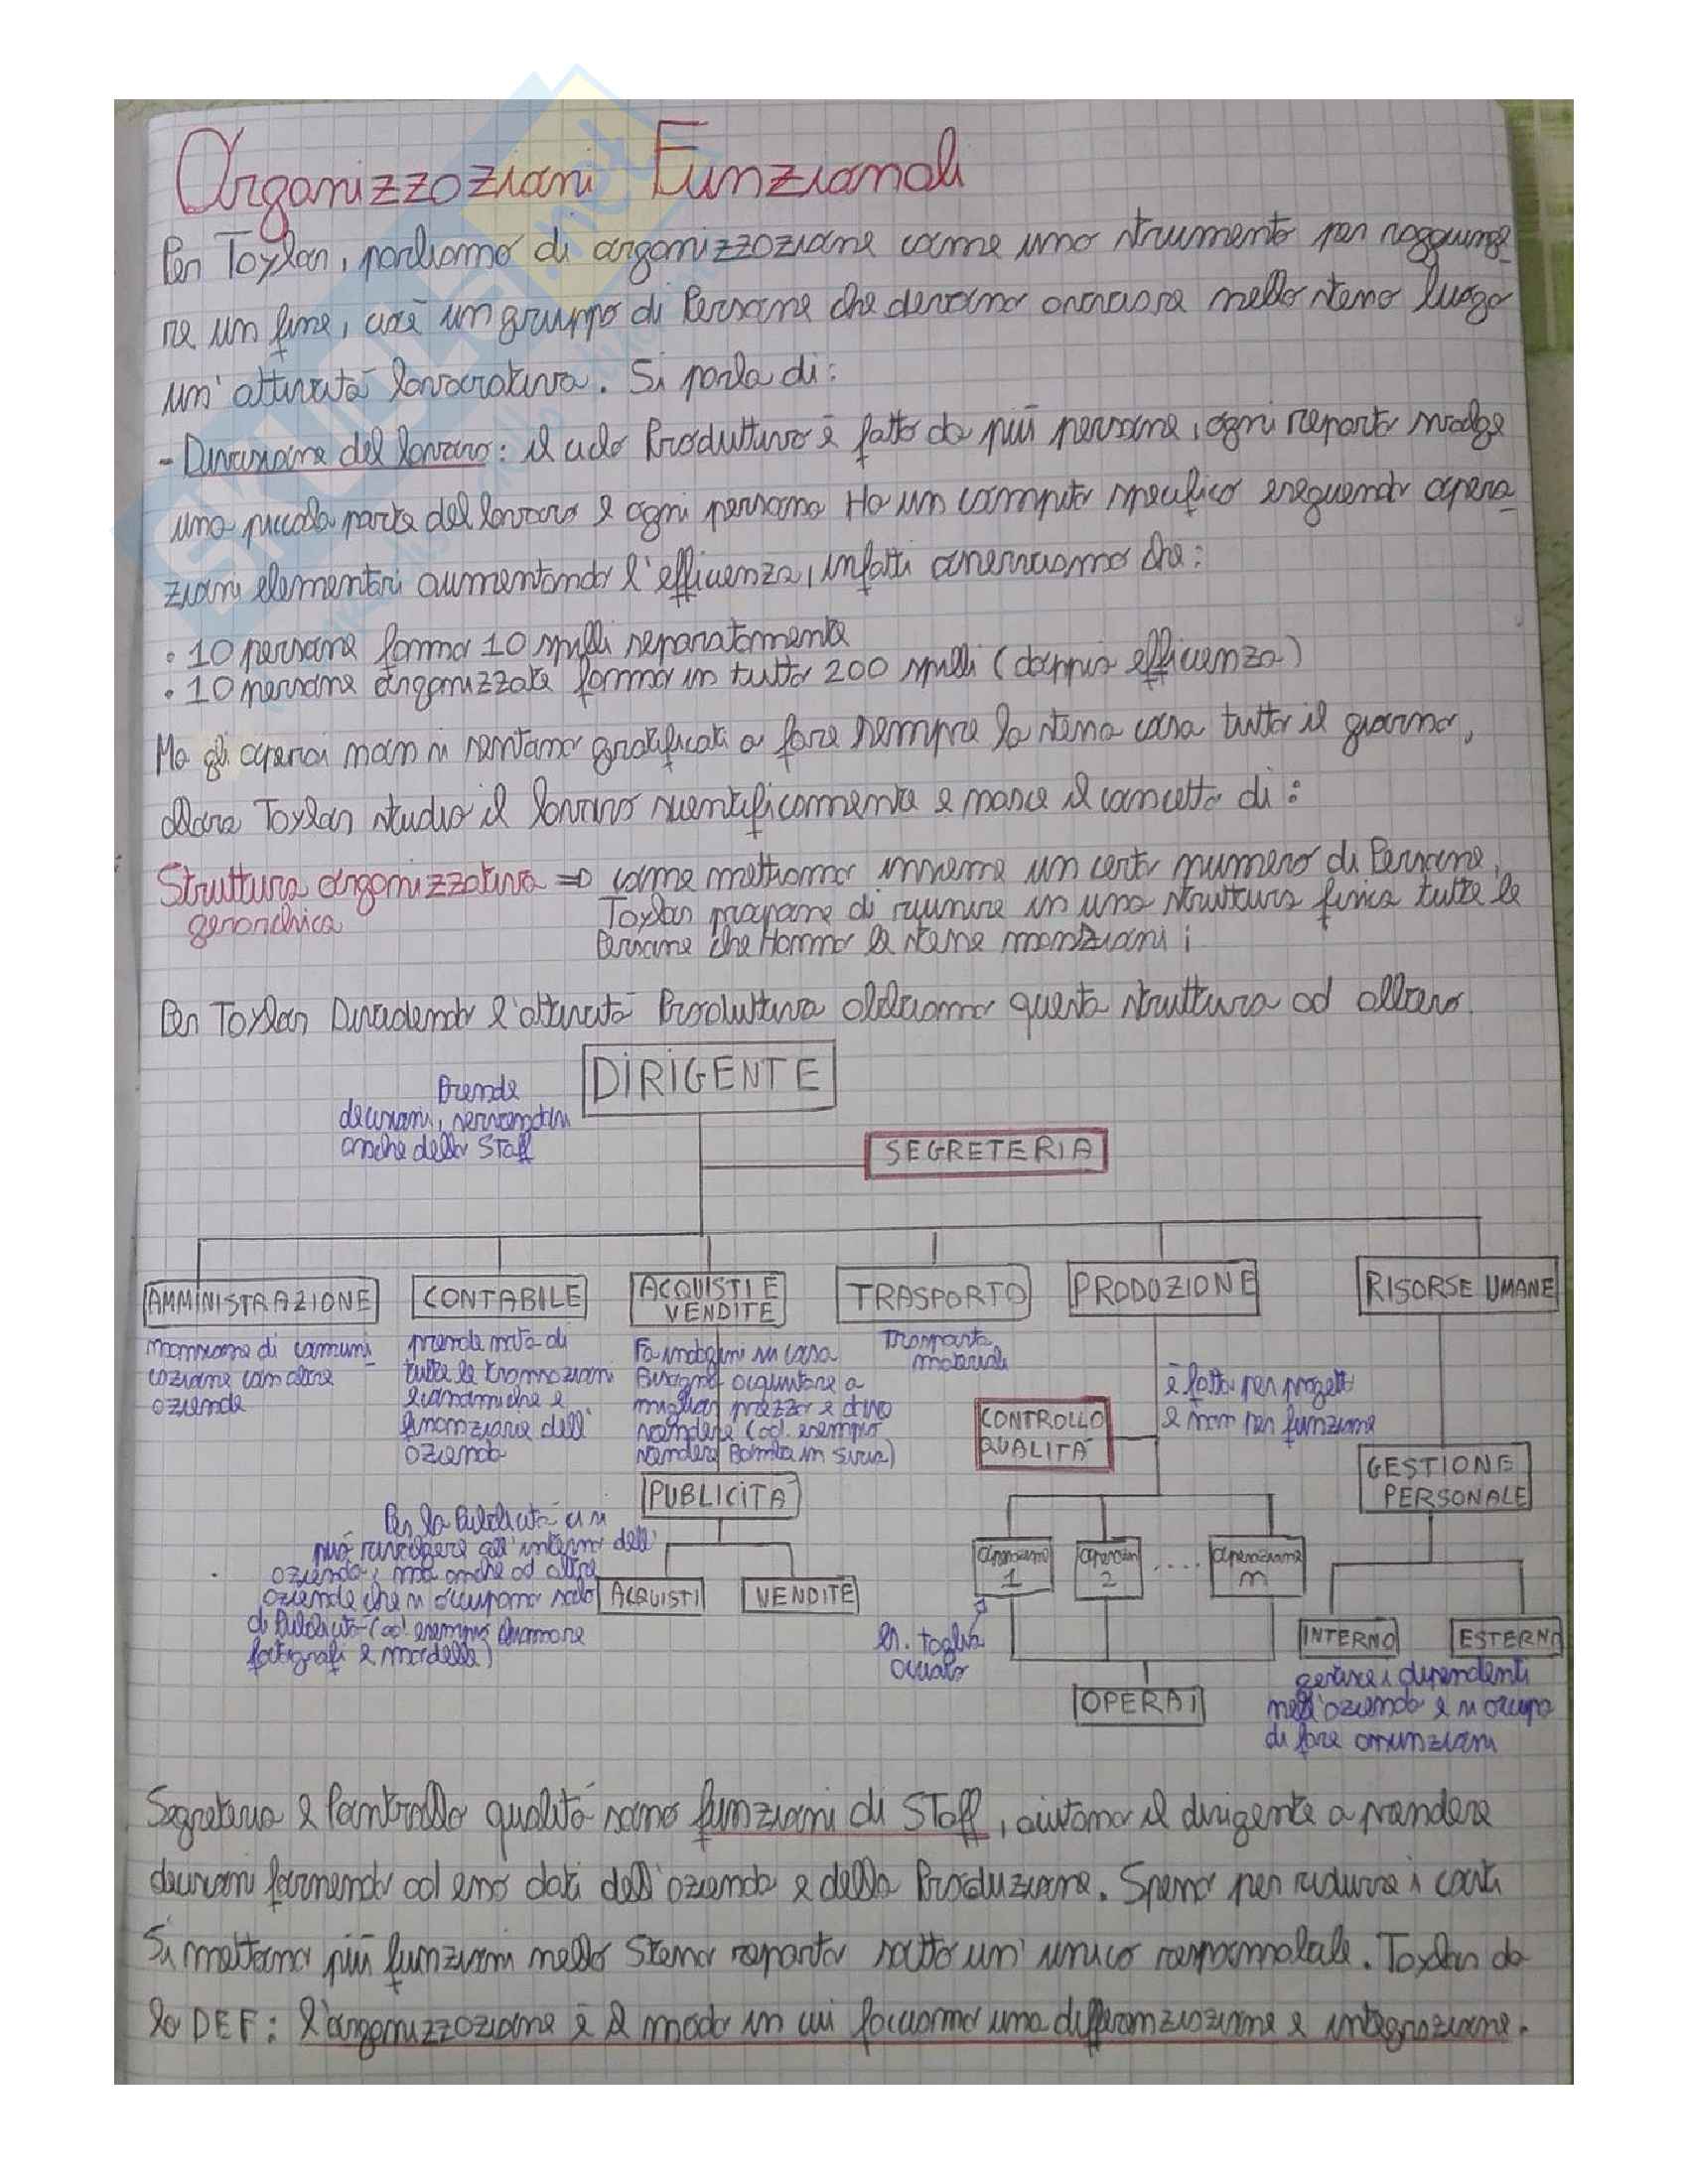 Organizzazioni Funzionali
Per Taylor, parliamo di organizzazione come uno strumento per raggiunge-
re un fine, cioè un gruppo di Persone che devono  nello stesso luogo
un'attività lavorativa. Si parla di:
- Divisione del lavoro: il ciclo Produttivo è fatto da più persone, ogni reparto svolge
una piccola parte del lavoro e ogni persona Ha un compito specifico eseguendo opera-
zioni elementari aumentando l'efficienza, infatti osserviamo che:
• 10 persone fanno 10 spilli separatamente
• 10 persone organizzate fanno in tutto 200 spilli (doppia efficienza)
Ma gli operai non si sentono gratificati a fare sempre la stessa cosa tutto il giorno,
allora Taylor studia il lavoro scientificamente e nasce il concetto di:
Struttura organizzativa ⇒ come mettiamo insieme un certo numero di Persone,
gerarchica Taylor propone di riunire in una struttura fisica tutte le
Persone che Hanno le stesse mansioni;
Per Taylor Dividendo l'attività Produttiva abbiamo questa struttura ad albero.
DIRIGENTE
Prende
decisioni, servendosi
anche dello Staff
SEGRETERIA
AMMINISTRAZIONE
CONTABILE
ACQUISTI E
VENDITE
TRASPORTO
PRODUZIONE
RISORSE UMANE
mansione di comuni-
cazione con altre
aziende
prende nota di
tutte le transazioni
economiche e
finanziarie dell'
azienda
Fa indagini su cosa
Bisogna acquistare a
miglior prezzo e dove
vendere (ad. esempio
vendere Bombe in Siria)
Trasporta
materiali
è fatta per progetti
e non per funzione
CONTROLLO
QUALITÁ
GESTIONE
PERSONALE
PUBLICITÁ
Per la Publicità ci si
può rivolgere all'interno dell'
azienda, ma anche ad altre
aziende che si occupano solo
di Publicità (ad. esempio chiamare
fotografi e modelle)
ACQUISTI
VENDITE
operazione
1
operazion
2
....
operazione
n
es. taglia
acciaio
OPERAI
INTERNO
ESTERNO
gestisce i dipendenti
nell'azienda e si occupa
di fare assunzioni
Segreteria e Controllo qualità sono funzioni di Staff, aiutano il dirigente a prendere
decisioni fornendo ad esso dati dell'azienda e della Produzione. Spesso per ridurre i costi
Si mettono più funzioni nello Stesso reparto sotto un'unico responsabile. Taylor da
la DEF: l'organizzazione è il modo in cui facciamo una differenziazione e integrazione.